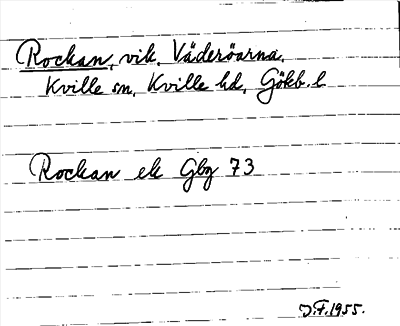 Rockan, vik, Väderöarna,
Kville sn, Kville hd, Götb. l
Rockan ek Gbg 73
J.F. 1955.